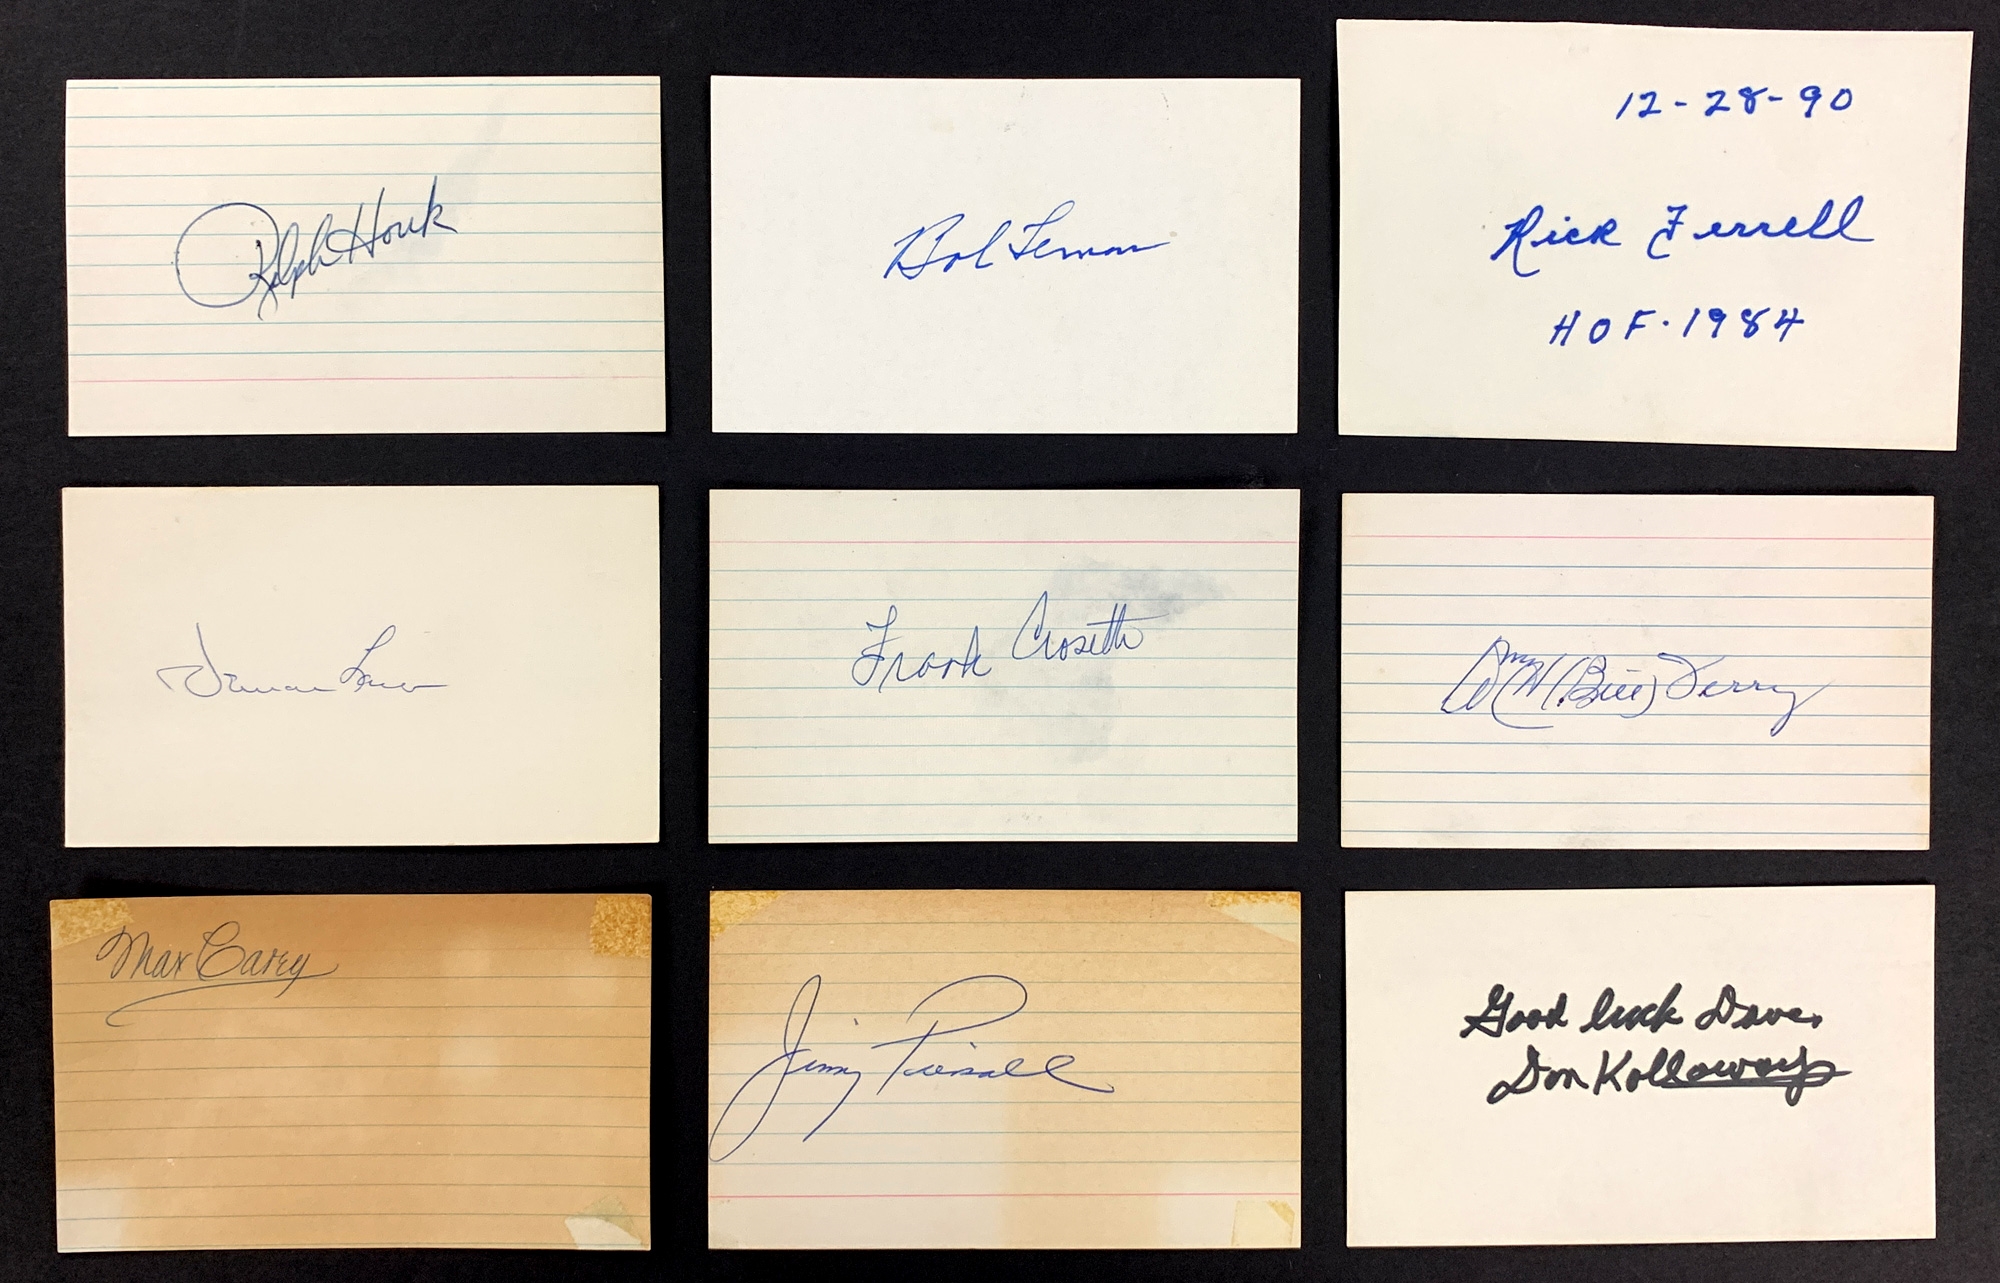 Ralph Houk
Bob Lemon
12-28-90
Rick Ferrell
HOF. 1984
Frank Crosetti
Wm H (Bill) Terry
Max Carey
Jimmy Piersall
Good luck Dave,
Don Kolloway